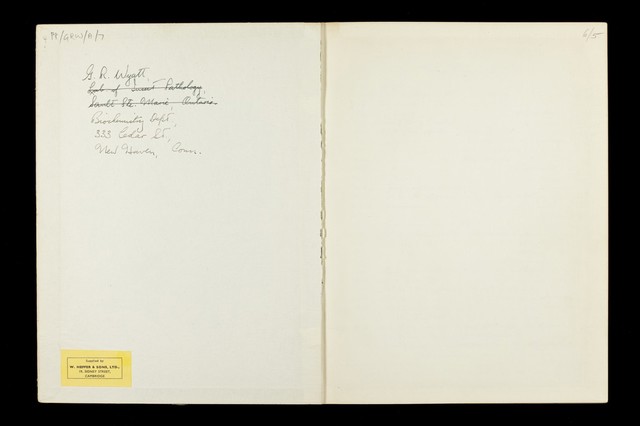 PP/GRW/A/7
6/5
G. R. Wyatt
Lab of Insect Pathology,
Sault Ste. Marie, Ontario.
Biochemistry Dept,
333 Cedar St.,
New Haven, Conn.
Supplied by
W. HEFFER & SONS, LTD.,
19, SIDNEY STREET,
CAMBRIDGE